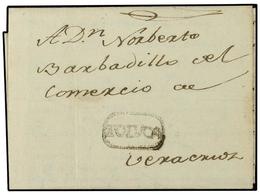 A Dⁿ Norberto
Barbadillo del
Comercio de
TOLUCA
Veracruz